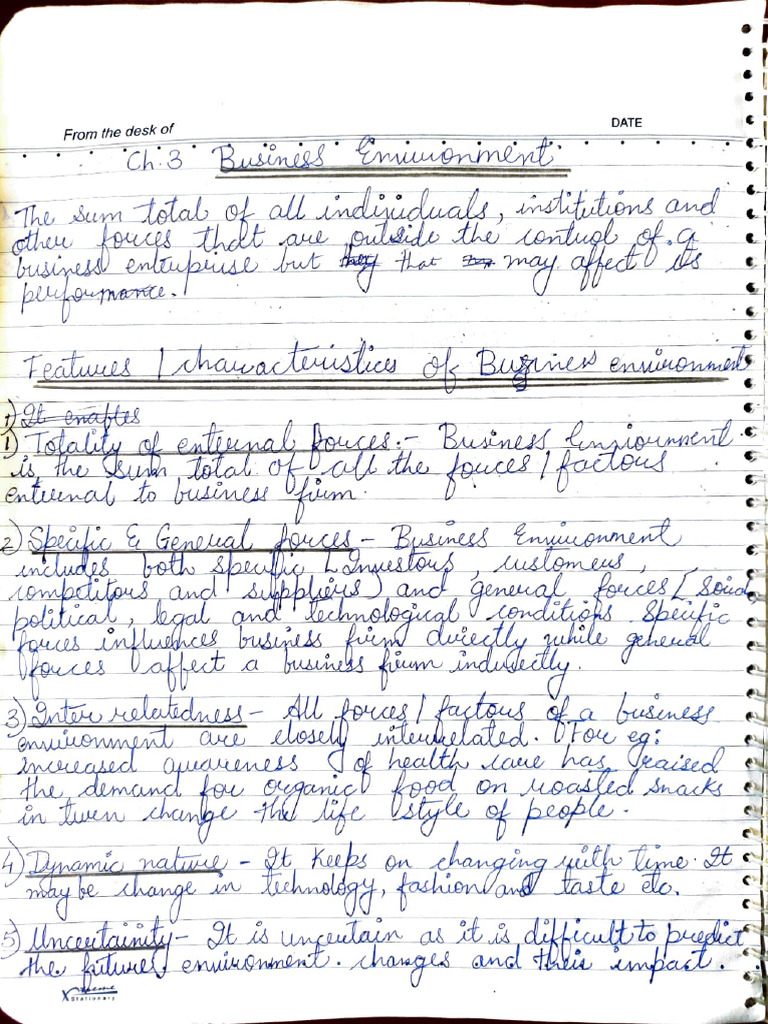 From the desk of
DATE
Ch. 3 Business Environment
The sum total of all individuals, institutions and
other forces that are outside the control of a
business enterprise but they that may affect its
performance.
Features / characteristics of Business environment
1) It enables
1) Totality of enternal forces:- Business Environment
is the sum total of all the forces / factors
enternal to business firm.
2) Specific & General forces - Business Environment
includes both specific [Investors, customers,
competitors and suppliers) and general forces [Social
political, legal and technological conditions. Specific
forces influences business firm directly while general
forces affect a business firm indirectly.
3) Inter relatedness - All forces / factors of a business
environment are closely interrelated. For eg:
increased awareness of health care has raised
the demand for organic food on roasted snacks
in turn change the life style of people.
4) Dynamic nature - It keeps on changing with time. It
may be change in technology, fashion and taste etc.
5) Uncertainity - It is uncertain as it is difficult to predict
the future environment. changes and their impact.
Stationary